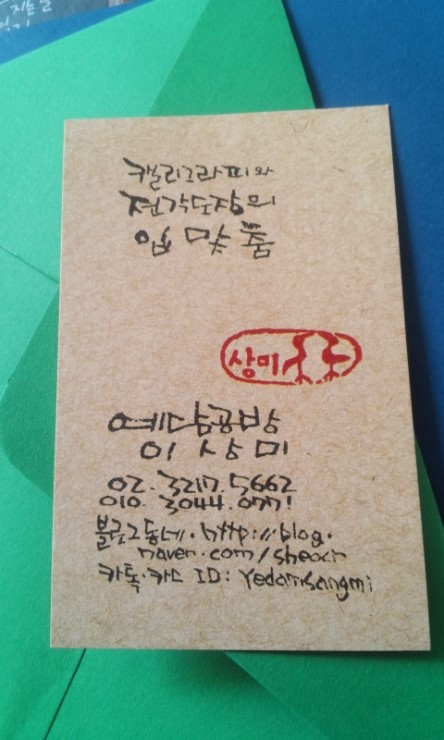 캘리그라피와
전각도장의
입맞춤
상미
예담공방
이상미
02.3217.5662
010.3044.0771
블로그동네.http://blog.
naver.com/
카톡.카스 ID: Yedamsangmi